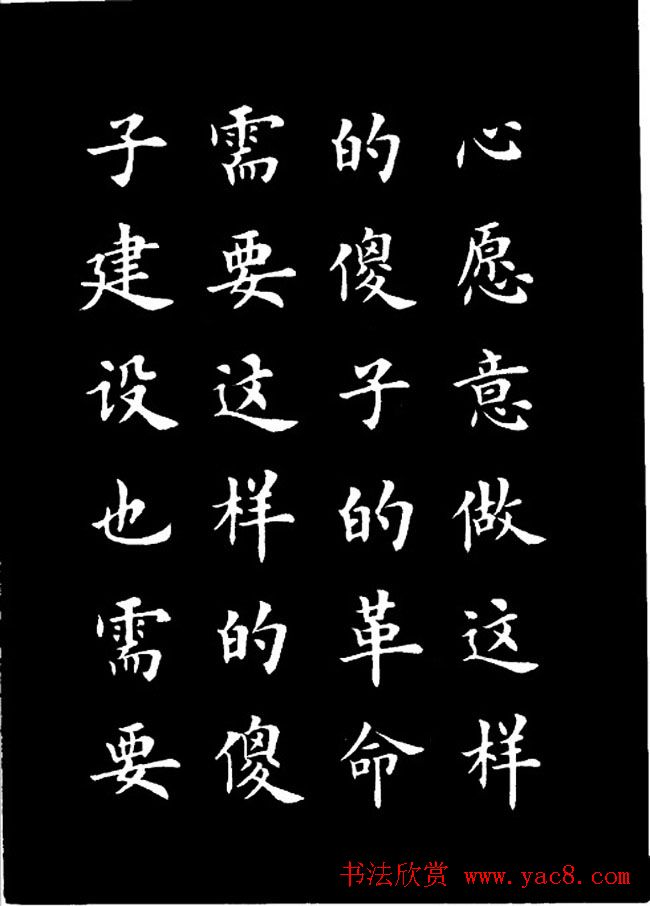 心愿意做这样
的傻子的革命
需要这样的傻
子建设也需要
书法欣赏 www.yac8.com